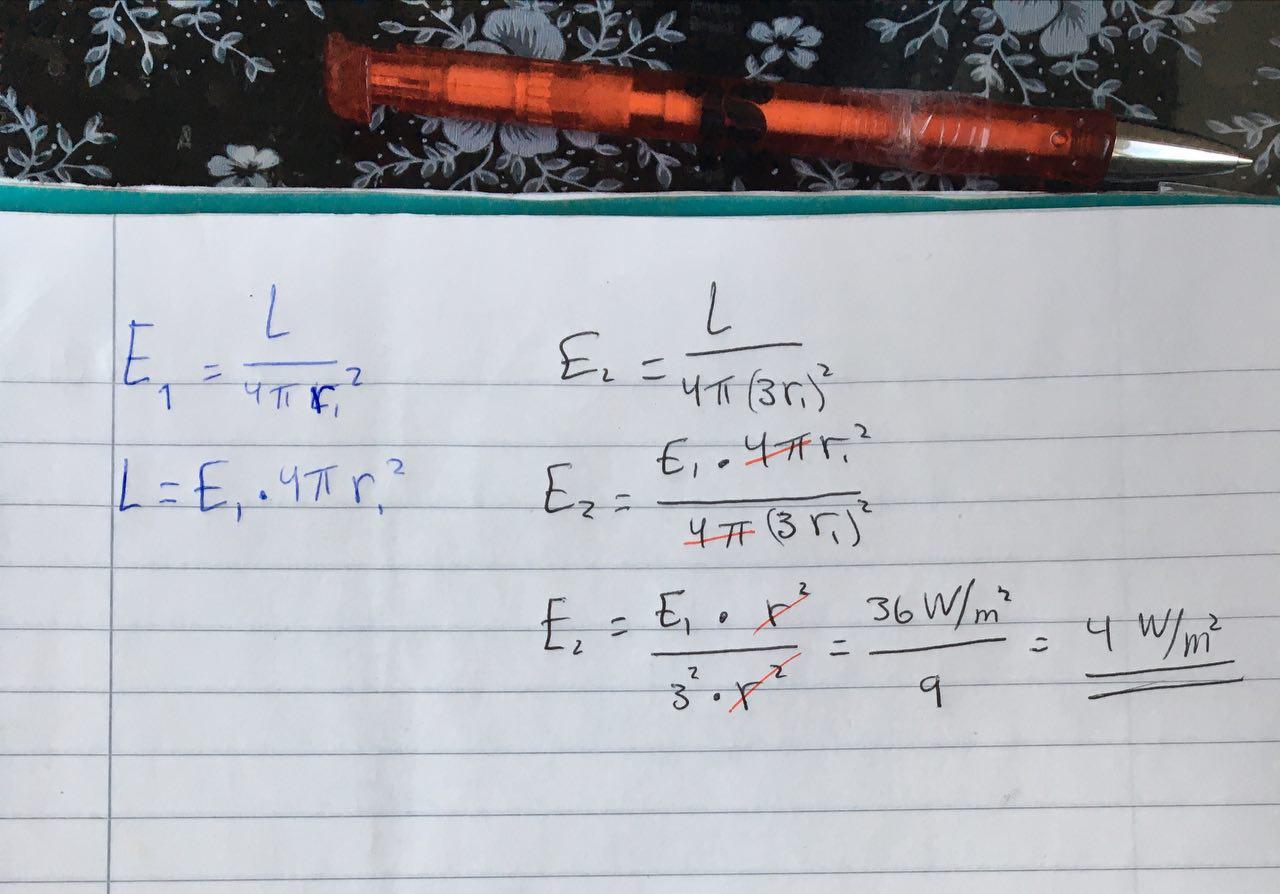 E₁ = L / 4π r₁²
L = E₁ · 4π r₁²
E₂ = L / 4π (3r₁)²
E₂ = E₁ · 4π r₁² / 4π (3 r₁)²
E₂ = E₁ · r² / 3² · r² = 36 W/m² / 9 = 4 W/m²